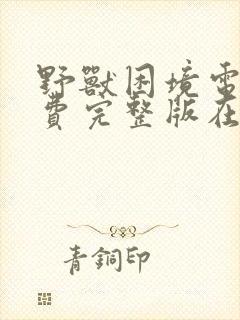 野獸困境電
費完整版在
青銅印